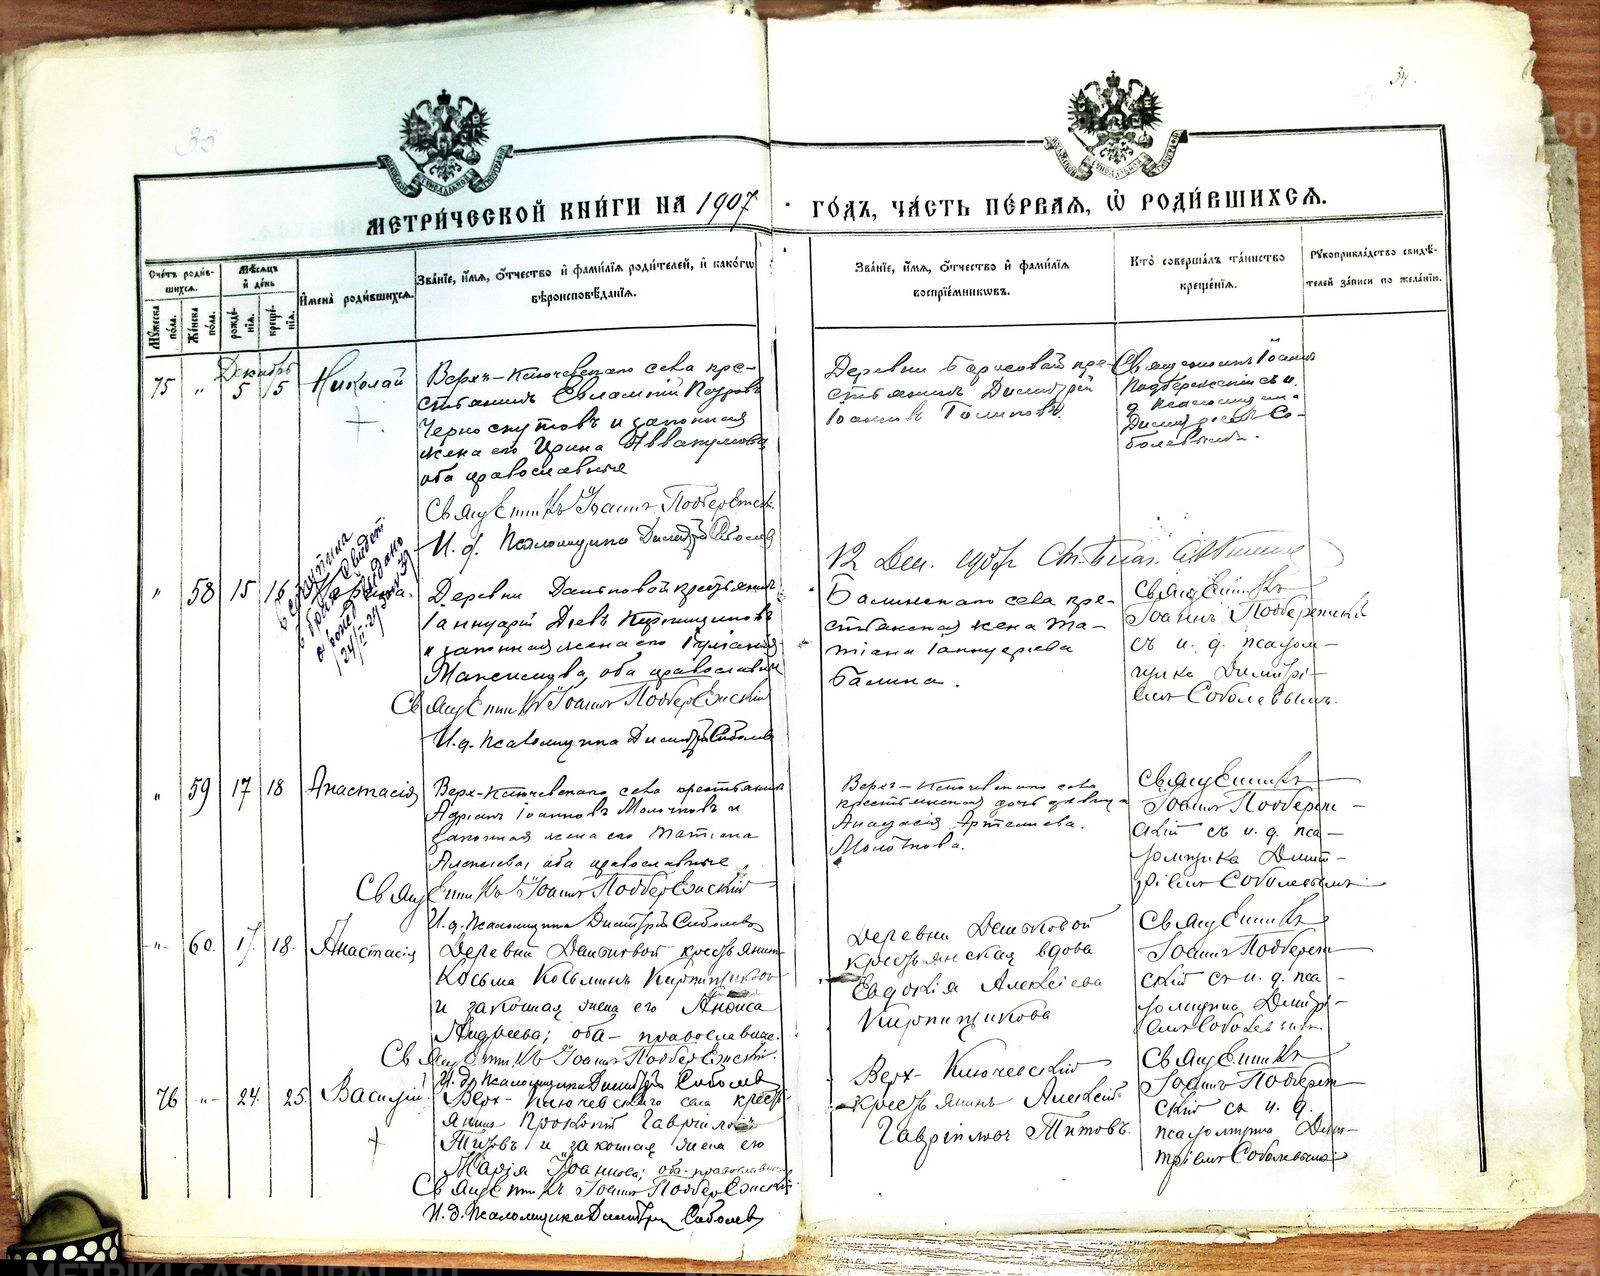 33
34.
МЕТРИ́ЧЕСКОЙ КНИ́ГИ НА 1907
ГО́ДЪ, ЧА́СТЬ ПЕ́РВАѦ, Ѡ҆ РОДИ́ВШИХСѦ.
Сче́тъ роди́в-
шихсѧ.
Мѣ́сѧцъ
и҆ де́нь
И҆мена̀ роди́вшихсѧ.
Зва́нїе, и҆́мѧ, ѻ҆́тчество и҆ фами́лїѧ роди́телей, и҆ како́гѡ
вѣроисповѣ́данїѧ.
Мꙋ́жеска
по́ла.
Же́нска
по́ла.
рожде́-
нїѧ.
креще́-
нїѧ.
Зва́нїе, и҆́мѧ, ѻ҆́тчество и҆ фами́лїѧ
воспрїе́мникѡвъ.
Кто̀ соверша́лъ та́инство
креще́нїѧ.
Рꙋкоприкла́дство свидѣ́-
телей за́писи по жела́нїю.
Декабрь
75 " 5 5 Николай
Верх-Ключевского села кре-
стьянинъ Евлампій Петровъ
Черноскутовъ и законная
жена его Ирина Аввакумова
оба православные
Священникъ Іоаннъ Подбережск.
И. д. Псаломщика Димитрій Соболев
Деревни Борисовой кре-
стьянинъ Димитрій
Іоанновъ
Священникъ Іоаннъ
Подбережскій съ и.
д. псаломщика
Димитріемъ Со-
болевымъ.
" 58 15 16
о рожд. выдано
Деревни Даньковой крестьянинъ
Іаннуарій Кирпищиковъ
и законная жена его
Максимова, оба православные
Священникъ Іоаннъ Подбережскій
И. д. Псаломщика Димитрій Соболев
12 Дек.
Балинскаго села кре-
стьянская жена Та-
тіана Іаннуарiева
Балина.
Священникъ
Іоаннъ Подбережскій
съ и. д. псалом-
щика Димитрі-
емъ Соболевымъ.
" 59 17 18 Анастасія
Верх-Ключевского села крестьянинъ
Адріанъ Іоанновъ Молотковъ и
законная жена его Татіана
Алексеева, оба православные
Священникъ Іоаннъ Подбережскій
И. д. Псаломщика Димитрій Соболев
Верх-Ключевского села
крестьянская дочь девица
Анастасія Артемиева
Молоткова.
Священникъ
Іоаннъ Подбереж-
скій съ и. д. пса-
ломщика Димит-
ріемъ Соболевымъ
-"- 60. 17. 18. Анастасія
Деревни Даньковой крестьянинъ
Косьма Косьминъ Кирпищиков
и законная жена его Анфиса
Андреева; оба - православные.
Священникъ Іоаннъ Подбережскій.
И. д. Псаломщика Димитрій Соболев
Деревни Даньковой
крестьянская вдова
Евдокія Алексіева
Кирпищикова
Священникъ
Іоаннъ Подбереж-
скій съ и. д. пса-
ломщика Димитрі-
емъ Соболевымъ
76 -"- 24. 25. Василій
Верх-Ключевского села кресть-
янинъ Прокопій Гавріиловъ
Титовъ и законная жена его
Марія Іоаннова; оба-православные
Священникъ Іоаннъ Подбережскій
И. д. Псаломщика Димитрій Соболев
Верх-Ключевский
крестьянинъ Алексій
Гавріиловъ Титовъ.
Священникъ
Іоаннъ Подбереж-
скій съ и. д.
псаломщика Дми-
тріемъ Соболевымъ